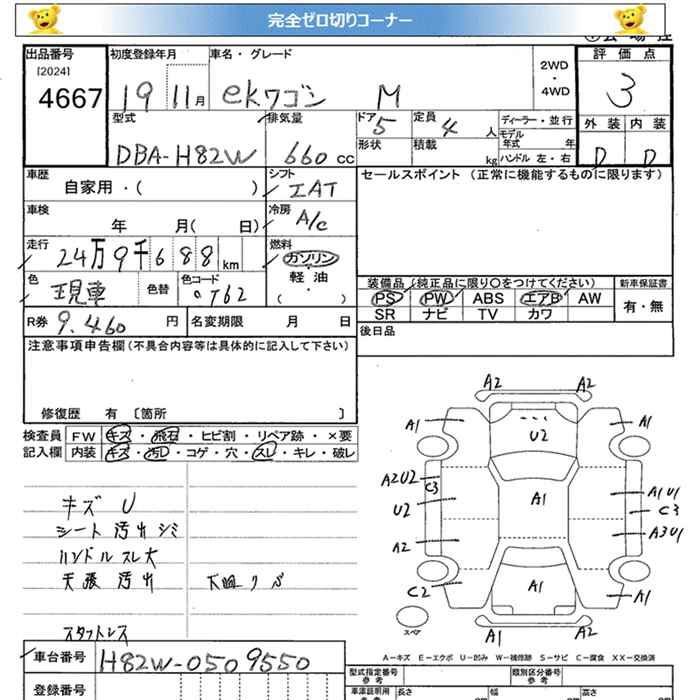 完全ゼロ切りコーナー
出品番号 初度登録年月 車名・グレード 2WD・4WD 評価点
[2024]
4667 19 11月 ekワゴン M 3
型式 排気量 ドア 5 定員 4 人 ディーラー・並行 外装 内装
DBA-H82W 660 cc 形状 積載 kg モデル年式 年 D D
ハンドル 左・右
車歴 自家用・( ) シフト IAT セールスポイント (正常に機能するものに限ります)
車検 年 月( 日) 冷房 A/C
走行 24万9千688 km 燃料 ガソリン・軽油 ( )
色 現車 色替 色コード 装備品 (純正品に限り○をつけてください) 新車保証書
PS PW ABS エアB AW 有・無
R券 9.460 円 名変期限 月 日 SR ナビ TV カワ
後日品
注意事項申告欄 (不具合内容等は具体的に記入して下さい)
修復歴 有 〔箇所 〕
検査員 FW キズ・飛石・ヒビ割・リペア跡・×要
記入欄 内装 キズ・汚レ・コゲ・穴・スレ・キレ・破レ
キズ U
シート 汚レ シミ
ハンドル スレ大
天張 汚レ 下廻り S
スタットレス
A2 A2
A1 U2 A1
A2U2 C3 A1 A1U1
U2 C3
A2 A3U1
C2 A1 A1
A1 A2
スペア
A-キズ E-エクボ U-凹み W-補修跡 S-サビ C-腐食 XX-交換済
車台番号 H82W-0509550
型式指定番号 参考 類別区分番号 参考
登録番号 車庫証明用 長さ cm 幅 cm 高さ cm